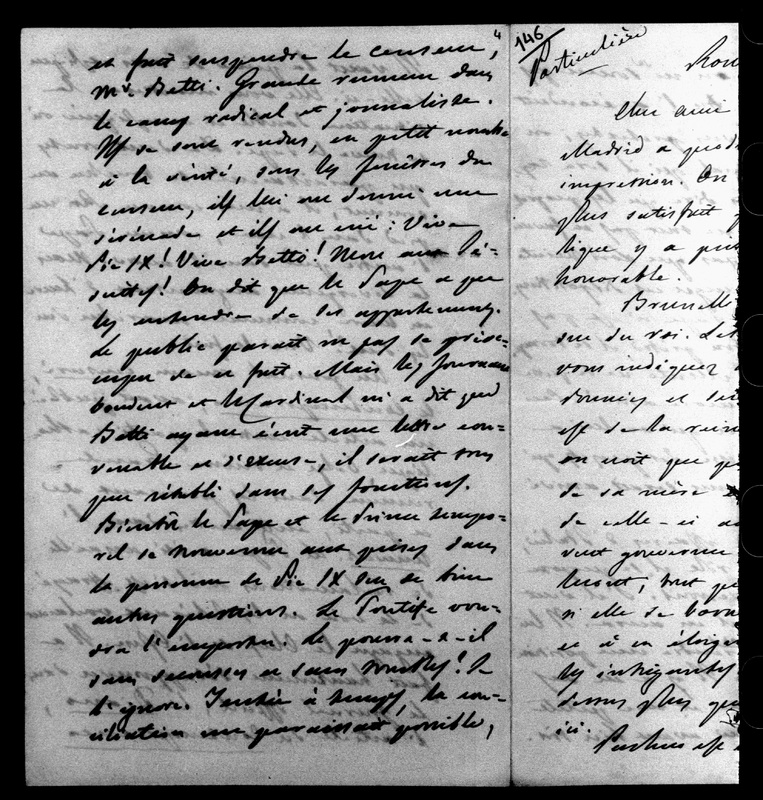 et fait suspendre le censeur,
Mr. Betti. Grande rumeur dans
le camp radical et journaliste.
Ils se sont rendus, en petit nombre
à la vérité, sous les fenêtres du
censeur, ils lui ont donné une
sérénade et ils ont crié: Viva
Pie IX! Viva Betti! Mort aux Jé-
suites! On dit que le Pape a pu
les entendre de ses appartements.
Le public paraît ne pas se préoc-
cuper de ce fait. Mais les journaux
boudent et le Cardinal m'a dit que
Betti ayant écrit une lettre con-
venable et d'excuse, il serait sous
peu rétabli dans ses fonctions.
Bientôt le Pape et le Prince tempo-
rel se trouveront aux prises dans
la personne de Pie IX sur de bien
autres questions. Le Pontife vou-
dra l'emporter. Le pourra-t-il
sans secousses et sans troubles! Je
l'ignore. Tentée à temps, la con-
ciliation me paraissait possible,
4
146
Particulière
Rom
Cher ami
Madrid a produ
impression. On
plus satisfait
lique y a pris
honorable.
Bruxelle
sue du roi. Les
vous indiquez
données et
est de la reine
on croit que
de sa mère
de celle-ci
veut gouverner
lement, tout
si elle se born
et à en éloign
les intrigants
dessus plus que
ici.
Pacheco est